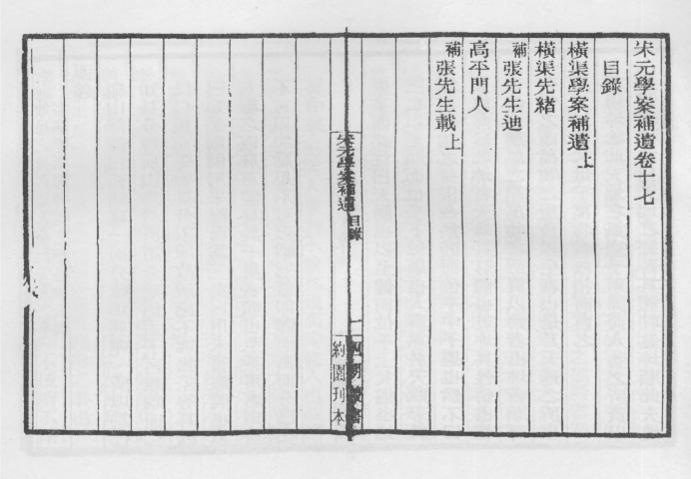 宋元學案補遺卷十七
目錄
橫渠學案補遺上
橫渠先緒
補張先生迪
高平門人
補張先生載上
宋元學案補遺 目錄
一
四明叢書
約園刊本